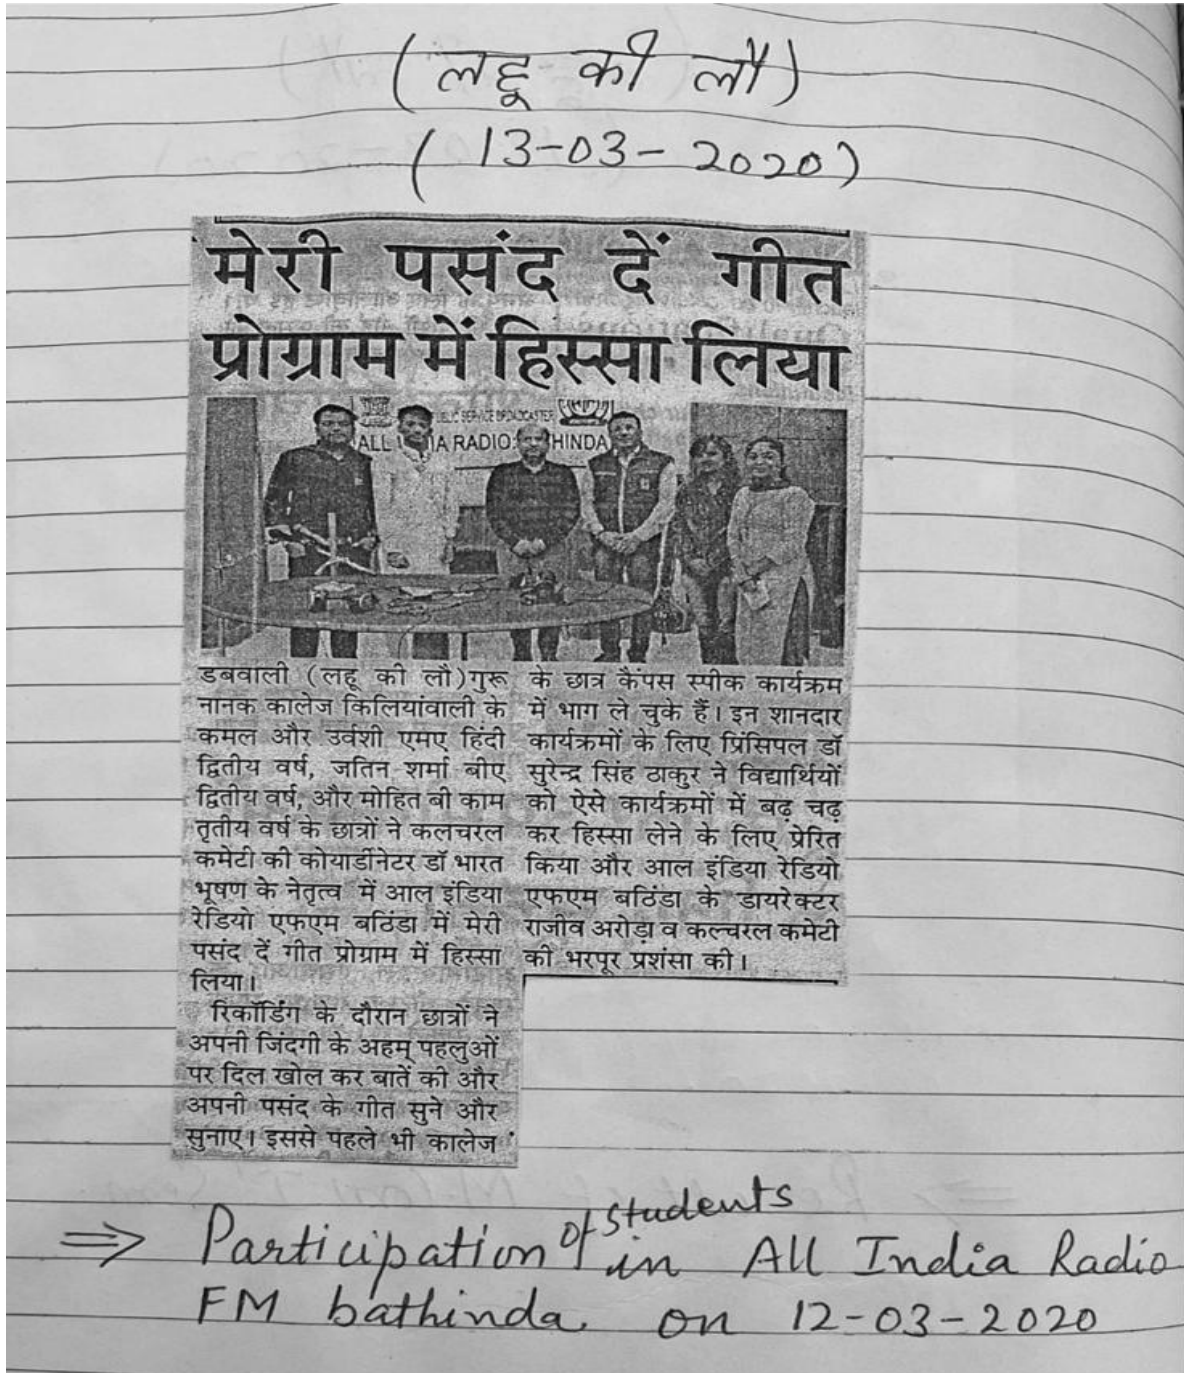 (लहू की लौ)
(13-03-2020)
मेरी पसंद दें गीत
प्रोग्राम में हिस्सा लिया
PUBLIC SERVICE BROADCASTER
ALL IA RADIO: HINDA
डबवाली (लहू की लौ)गुरू
नानक कालेज किलियांवाली के
कमल और उर्वशी एमए हिंदी
द्वितीय वर्ष, जतिन शर्मा बीए
द्वितीय वर्ष, और मोहित बी काम
तृतीय वर्ष के छात्रों ने कलचरल
कमेटी की कोयार्डीनेटर डॉ भारत
भूषण के नेतृत्व में आल इंडिया
रेडियो एफएम बठिंडा में मेरी
पसंद दें गीत प्रोग्राम में हिस्सा
लिया।
रिकॉर्डिंग के दौरान छात्रों ने
अपनी जिंदगी के अहम् पहलुओं
पर दिल खोल कर बातें की और
अपनी पसंद के गीत सुने और
सुनाए। इससे पहले भी कालेज
के छात्र कैंपस स्पीक कार्यक्रम
में भाग ले चुके हैं। इन शानदार
कार्यक्रमों के लिए प्रिंसिपल डॉ
सुरेन्द्र सिंह ठाकुर ने विद्यार्थियों
को ऐसे कार्यक्रमों में बढ़ चढ़
कर हिस्सा लेने के लिए प्रेरित
किया और आल इंडिया रेडियो
एफएम बठिंडा के डायरेक्टर
राजीव अरोड़ा व कल्चरल कमेटी
की भरपूर प्रशंसा की।
⇒ Participation of students in All India Radio
FM bathinda on 12-03-2020